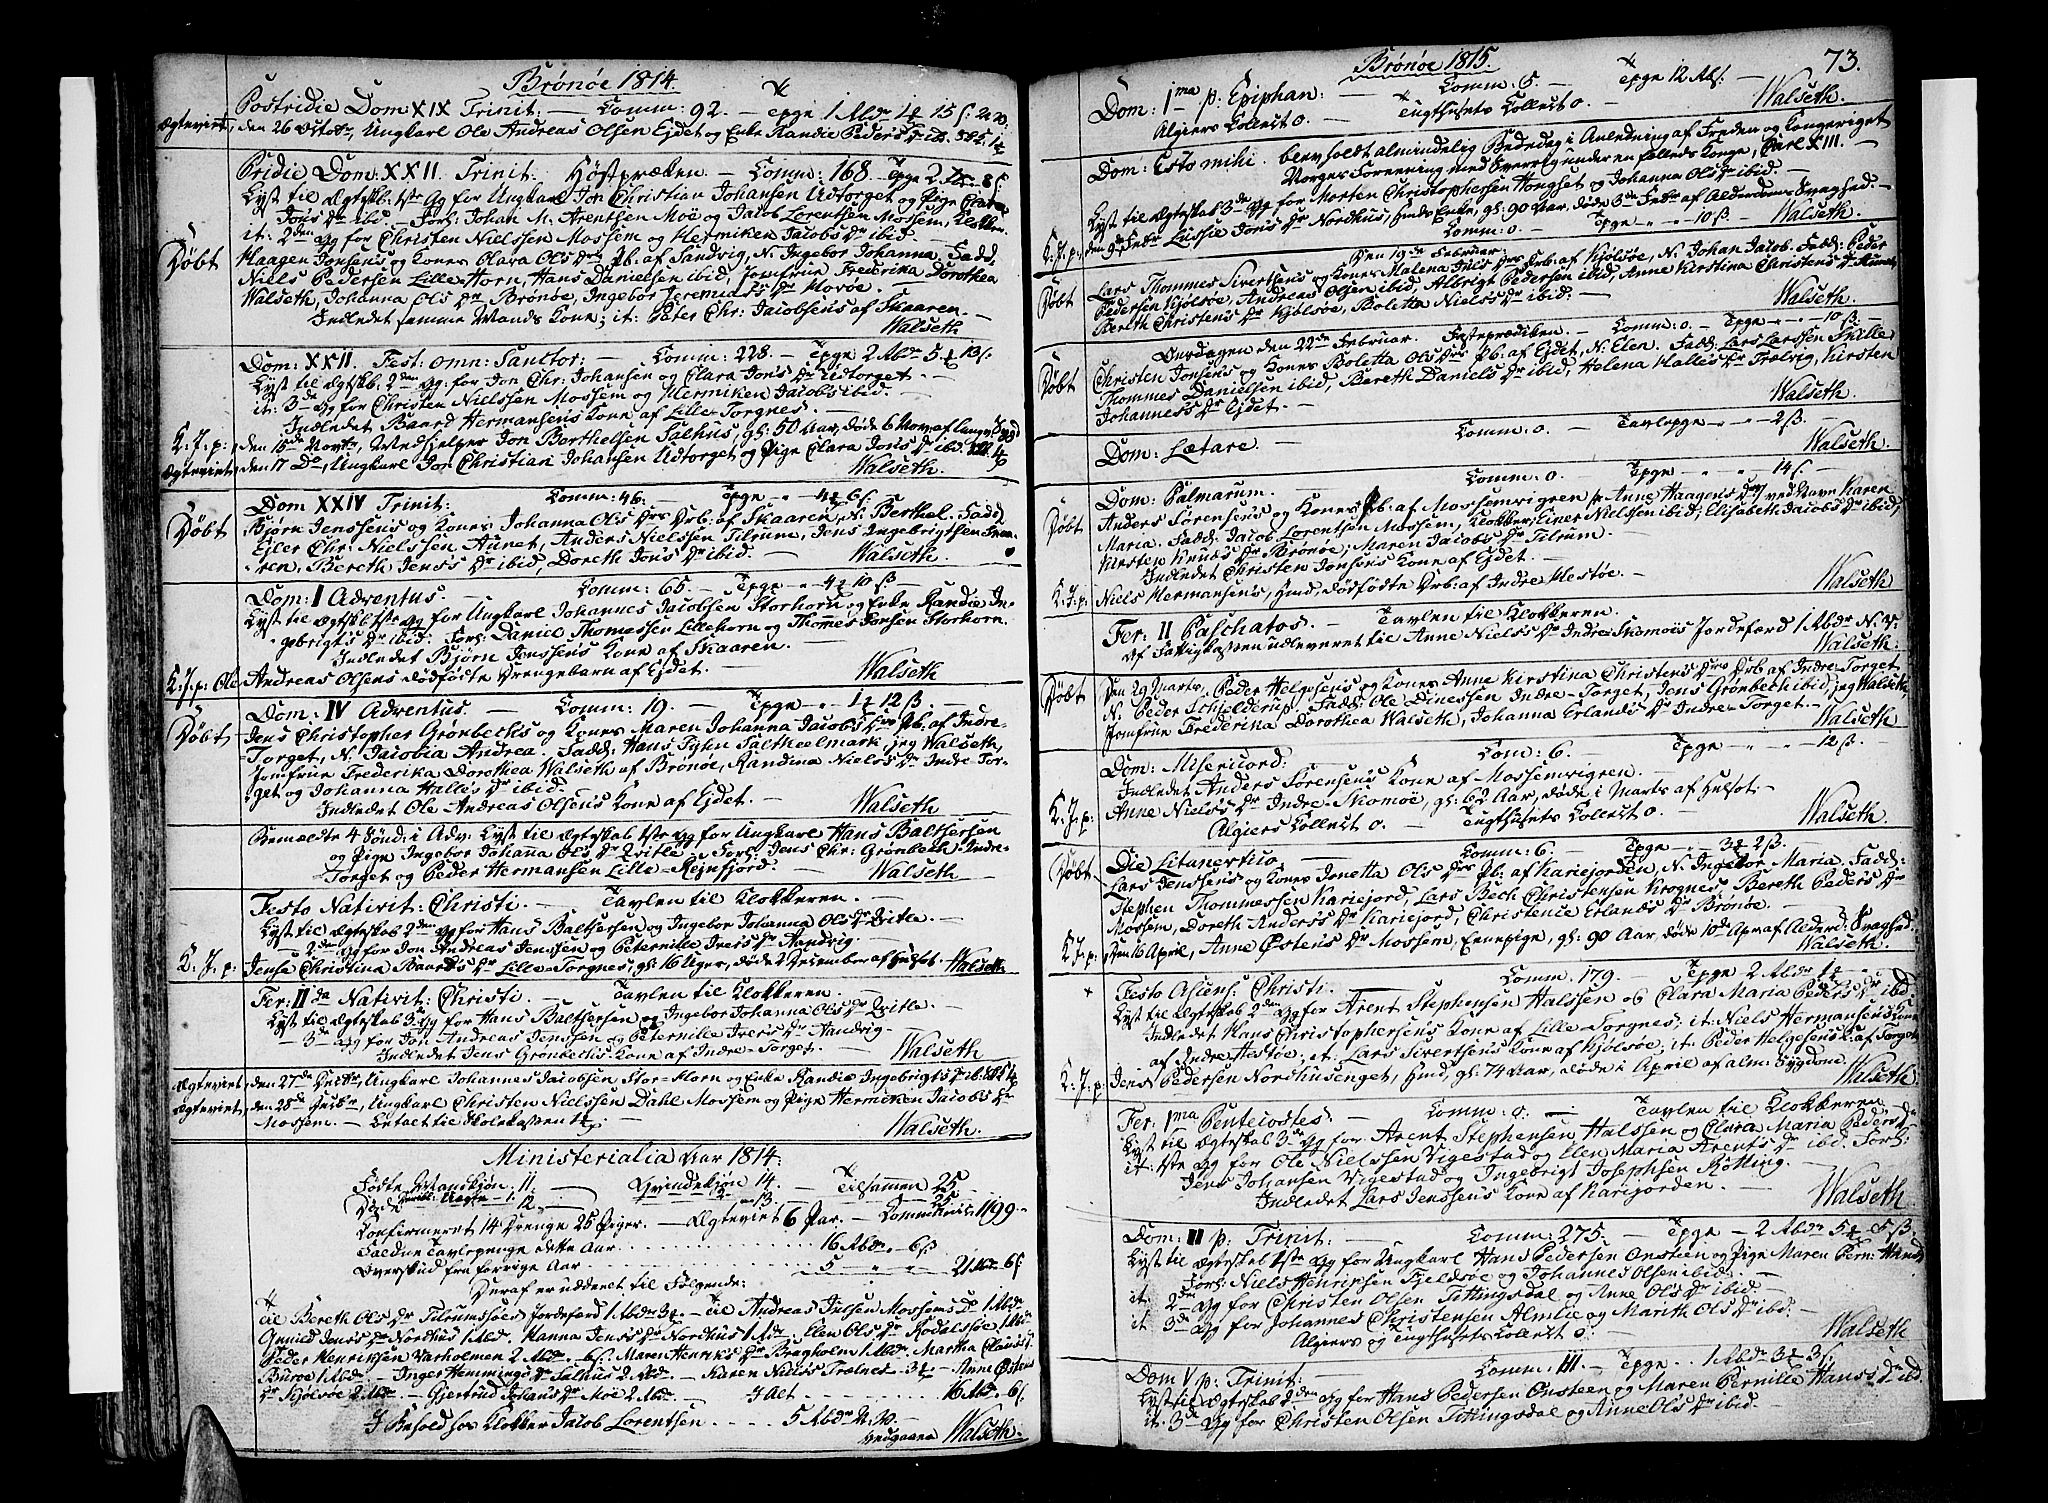 Brønøe 1814.
Postridie Dom XIX Trinit. — Comm: 92. — Tpge 1 Abdr 4 15 ß.
Ægteviet, den 26 Octobr, Ungkarl Ole Andreas Olsen Ejdet og Enke Randie Peders Dr ib.
Pridie Dom: XXII Trinit. Høstpræken — Comm: 168. Tpge 2
Lyst til Ægtskb: 1ste Gg for Ungkarl Jon Christian Johansen Udtorget og Pige Clara
Jons Dr ibid — Forl: Johan M. Arentsen Moe og Jacob Lorentsen Mossem, Klokker.
it: 2den Gg for Christen Nielssen Mossem og Hermiken Jacobs Dr ibid.
Døbt Haagen Jonsens og Kones Clara Ols Drs Pb. af Sandvig, N. Ingebor Johanna. Fadd.
Niels Pedersen Lille Horn, Hans Danielsen ibid, Jomfrue Frederika Dorothea
Walseth, Johanna Ols Dr Brønøe, Ingebor Jeremias Dr Moröe. —
Indledet samme Mands Kone; it: Peter Chr: Jacobsens af Skaaren. —
Walseth
Dom: XXII. Fest: omn: Sanctor: — Comm: 228. — Tpge 2 Abdr 5 13 ß.
Lyst til Ægtskb. 2den Gg for Jon Chr: Johansen og Clara Jons Dr Udtorget —
it: 3de Gg for Christen Nielssen Mossem og Hermiken Jacobs ibid. —
Indledet Baard Hermansens Kone af Lille-Torgnes. —
K. J. p: den 15de Novbr, Medhjelper Jon Berthelsen Salhus, gl: 50 Aar, døde 6 Nov. af
Ægteviet, den 17 Do, Ungkarl Jon Christian Johansen Udtorget og Pige Clara Jons Dr ibid
Walseth
Dom XXIV Trinit: Comm: 46. — Tpge " 4 6 ß.
Døbt Bjørn Jenssens og Kones Johanna Ols Drs Drb: af Skaaren, N. Berthel. Fadd
Ejler Chr: Nielssen Aunet, Anders Nielssen Tilrum, Jens Ingebrigtsen Skaa-
ren, Bereth Jens's Dr ibid, Doreth Jons Dr ibid. — Walseth
Dom: I Adventus. — Comm: 65. — Tpge " 4 10 ß —
Lyst til Ægtskb 1ste Gg for Ungkarl Johannes Jacobsen Storhorn og Enke Randie In-
gebrigts Dr ibid: Forl: Daniel Thomessen Lillehorn og Thomes Jonsen Storhorn.
Indledet Bjørn Jenssens Kone af Skaaren.
K. J. p: Ole Andreas Olsens dødfødte Drengebarn af Ejdet. — Walseth
Dom: IV Adventus. — Comm: 19. — Tpge " 1 12 ß —
Døbt Jens Christopher Grønbechs og Kones Maren Johanna Jacobs Drs Pb: af Indre-
Torget, N. Jacobia Andrea. Fadd: Hans Tyhn Saltheelmark, jeg Walseth,
Jomfrue Frederika Dorothea Walseth af Brønøe, Randina Niels's Dr Indre Tor-
get og Johanna Halles Dr ibid.
Indledet Ole Andreas Olsens Kone af Ejdet. — Walseth
Bemældte 4 Sønd: i Adv: Lyst til Ægteskab 1ste Gg for Ungkarl Hans Balthersen
og Pige Ingebor Johanna Ols Dr Qvitle. Forl: Jens Chr: Grønbech Indre-
Torget og Peder Hermansen Lille-Rejnfjord. — Walseth
Festo Nativit: Christi. — Tavlen til Klokkeren. —
Lyst til Ægteskab 2den Gg for Hans Balthersen og Ingebor Johanna Ols Dr Qvitle. —
— 2den Gg for Jon Andreas Jenssen og Peternille Ivers Dr Sandvig. —
K. J. p: Jensa Christina Baards Dr Lille-Torgnes, gl: 16 Uger, døde 2 December af Hulsot. Walseth
Fer: IIda Nativit: Christi. — Tavlen til Klokkeren. —
Lyst til Ægteskab 3de Gg for Hans Balthersen og Ingebor Johanna Ols Dr Qvitle. —
— 3de Gg for Jon Andreas Jenssen og Peternille Ivers's Dr Sandvig —
Indledet Jens Grønbechs Kone af Indre-Torget. — Walseth
Ægteviet, den 27de Decbr, Ungkarl Johannes Jacobsen Stor-Horn og Enke Randie Ingebrigts Dr ib:
Ægteviet, den 28de Decbr, Ungkarl Christen Nielssen Dahl Mossem og Pige Hermiken Jacobs Dr
Mossem. — Betalt til Skolekassen — Walseth.
Ministerialia Aar 1814:
Fødte Mandkjøn 11. — Qvindekjøn 14. — Tilsamen 25
Døde 12. — 13. — 25
Confirmeret 14 Drenge 25 Piger. — Ægteviet 6 Par. — Communic: 1199. —
Faldne Tavlepenge dette Aar . . . . . 16 Abdr " 6 ß
Overskud fra forrige Aar . . . . . 5 " " — 21 Abdr 6 ß.
Deraf er udderet til Følgende:
Til Bereth Ols Dr Tilrumsøes Jordefærd 1 Abdr 3. — Til Andreas Julsen Mossems Do 1 Abdr
Gunild Jens's Dr Nordhus 1 Abdr. Hanna Jens's Dr Nordhus 1 Abdr. Elen Ols Dr Rødalssøe 1 Abdr
Peder Henriksen Varholmen 2 Abdr. 6 ß. Maren Henriks Dr Bragholm 1 Abdr. Martha Claus's Dr
Buroe 1 Abdr. — Inger Hemmings Dr Salhus 2 Abdr. — Karen Niels's Trælnes 3 — Anne Østens
Dr Kjølsøe 2 Abdr. — Gjertrud Dr Moe 2 Abdr. — I Alt . . . . 16 Abdr. 6 ß.
I Behold hos Klokker Jacob Lorentsen . . . . 5 Abdr N. V.
Walseth.
Brønøe 1815.
73.
Dom: 1ma p. Epiphan: — Comm: 5. — Tpge 12 Abß. —
Algiers Collect 0. — Tugthusets Collect 0. — Walseth.
Dom: Esto mihi. bevholdt almindelig Bededag i Anledning af Freden og Kongeriget
Norges Forening med Sverrig under en fælleds Konge, Carl XIII. —
Lyst til Ægteskab 3de Gg for Morten Christophersen Honghet og Johanna Ols Dr ibid. —
K. J. p: den 9de Febr Lucie Jons Dr Nordhus, Hmds Enke, gl: 90 Aar, døde 3de Febr af Alderdoms Svaghed. —
Comm: 0. — Tpge " " 10 ß — Walseth.
Den 19de Februar:
Døbt Lars Thommes Sivertsens og Kones Malena Drs Drb: af Kjølsøe, N. Johan Jacob. Fadd: Peder
Pedersen Kjølsøe, Andreas Olsen ibid, Albrigt Pedersen ibid, Anne Kirstina Christens Dr Aunet,
Bereth Christens Dr Kjølsøe, Boletta Niels's Dr ibid: — Walseth.
Onsdagen den 22de Februar. Fasteprædiken. — Comm: 0. — Tpge " " 10 ß. —
Døbt Christen Jonsens og Kones Boletta Ols Drs Pb: af Ejdet, N. Elen. Fadd: Lars Larssen Skille
Thommes Danielsen ibid, Bereth Daniels Dr ibid, Helena Halles Dr Trælvig, Kirsten
Johannes's Dr Ejdet. — Walseth.
Dom: Lætare. — Comm: 0. — Tavlepge " " 2 ß. — Walseth.
Dom: Palmarum. — Comm: 0. — Tpge " " 14 ß. —
Døbt Anders Sørensens og Kones Pb: af Mossemvigren p Anne Haagens Dr ved Navn Karen
Maria. Fadd: Jacob Lorentsen Mossem, Klokker, Einer Nielssen ibid, Elisabeth Jacobs Dr ibid,
Kirsten Knuds Dr Brønøe, Maren Jacobs Dr Tilrum. —
Indledet Christen Jonsens Kone af Ejdet. —
K. J. p: Niels Hermansens, Hmd, dødfødte Drb: af Indre Hestøe. — Walseth
Fer: II Paschatos. — Tavlen til Klokkeren. —
Af Fattigkassen udleveret til Anne Niels's Dr Indre-Skomoes Jordefærd 1 Abdr N. V.
Walseth.
Døbt Den 29 Marts, Peder Helgesens og Kones Anne Kirstina Christens Drs Drb. af Indre-Torget
N. Peder Schjelderup. Fadd: Ole Dinessen Indre-Torget, Jens Grønbech ibid, jeg Walseth
Jomfrue Frederika Dorothea Walseth, Johanna Erlands Dr Indre-Torget. — Walseth
Dom: Misericord: — Com: 6. — Tpge — " — 12 ß. —
Indledet Anders Sørensens Kone af Mossemvigren. —
K. J. p: Anne Niels's Dr Indre-Skomøe, gl: 62 Aar, døde i Marts af Hulsot. —
Algiers Collect 0. — Tugthusets Collect 0. — Walseth.
Comm: 6. — Tpge — " 3 2 ß. —
Døbt Lars Jenssens og Kones Jonetta Ols Drs Pb: af Kariejorden, N. Ingebor Maria. Fadd:
Stephen Thommessen Kariejord, Lars Bech Christensen Krognes, Bereth Peders Dr
Mossem, Doreth Anders's Dr Kariejord, Christence Erlands Dr Brønøe. —
K. J. p: Den 16 April, Anne Østens Dr Mossem, gl: 90 Aar, døde 10de Apr af Alderd: Svaghed.
Walseth.
Festo Ascens: Christi. — Comm: 179. — Tpge 2 Abdr 1 "
Lyst til Ægteskab 2den Gg for Arent Stephensen Halssen og Clara Maria Peders Dr ibid —
Indledet Hans Christophersens Kone af Lille-Torgnes; it: Niels Hermansens Kone
af Indre Hestøe; it: Lars Sivertsens Kone af Kjølsøe; it: Peder Helgesens K: af Torget
K: J. p: Jens Pedersen Nordhusenget, Hmd, gl: 74 Aar, døde i April af alm: Sygdom. Walseth.
Fer: 1ma Pentecostes. — Comm: 0. — Tavlen til Klokkeren —
Lyst til Ægteskab 3de Gg for Arent Stephensen Halssen og Clara Maria Peders Dr
it: 1ste Gg for Ole Nielssen Vigestad og Elen Maria Arents Dr ibid. Forl:
Jens Johansen Vigestad og Ingebrigt Josephsen Røtting. —
Indledet Lars Jenssens Kone af Kariejorden. — Walseth
Dom: II p. Trinit. — Comm: 275. — Tpge — 2 Abdr 5 5 ß.
Lyst til Ægteskab 1ste Gg for Ungkarl Hans Pedersen Onsteen og Pige Maren Pern: Hans Dr
Forl: Niels Henriksen Fjeldsøe og Johannes Olsen ibid. —
it: 2den Gg for Christen Olsen Tettingsdal og Anne Ols Dr ibid. —
it. 3de Gg for Johannes Christensen Almlie og Marith Ols Dr ibid. —
Algiers og Tugthusets Collect 0. — Walseth
Dom V. p: Trinit: — Comm: 111. — Tpge . . 1 Abdr 3 3 ß.
Lyst til Ægteskab 2den Gg for Hans Pedersen Onsteen og Maren Pernille Hans's Dr ibid.
it: 3de Gg for Christen Olsen Tettingsdal og Anne Ols Dr ibid. —